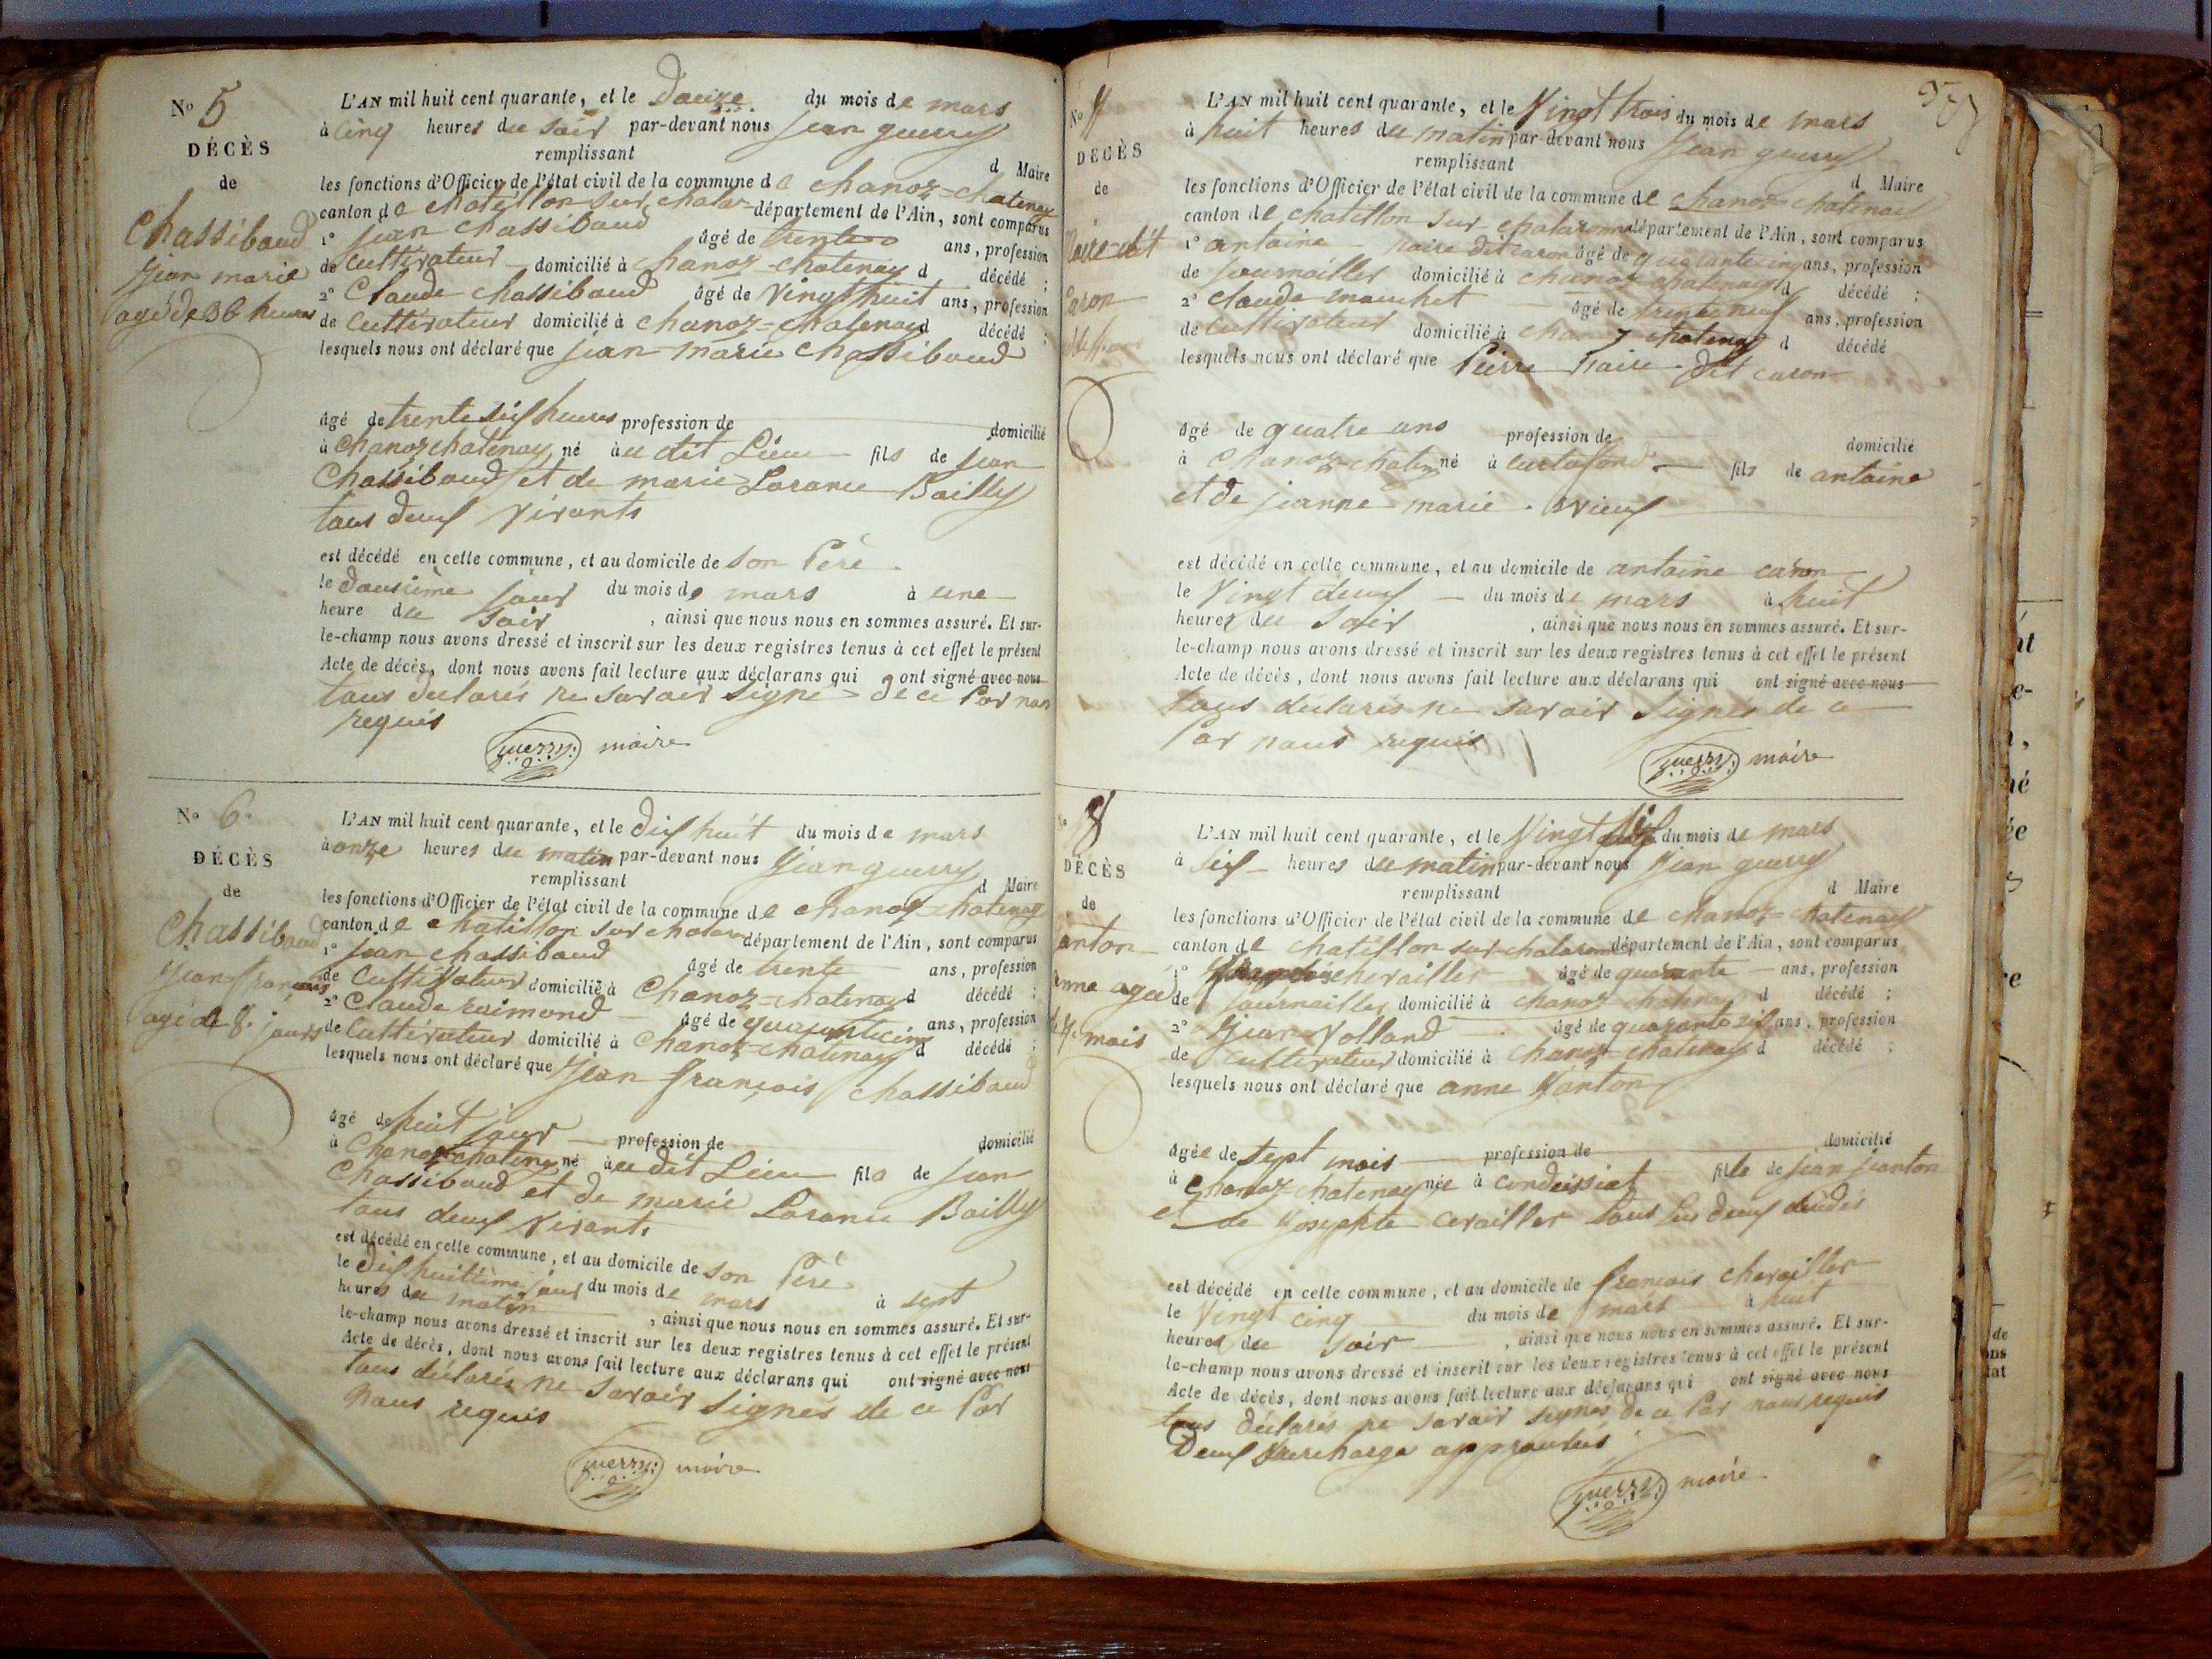 No 5
DÉCÈS
de
Chassibaud
Jean marie
agé de 36 heures
L'AN mil huit cent quarante, et le Douze du mois de mars
à Cinq heures du Soir par-devant nous jean guerry
remplissant d Maire
les fonctions d'Officier de l'état civil de la commune de chanoz=chatenay
canton de chatillon sur chalar= département de l'Ain, sont comparus
1° jean chassibaud âgé de trente ans, profession
de Cultivateur domicilié à chanoz-chatenay d décédé ;
2° Claude chassibaud âgé de Vingt huit ans, profession
de Cultivateur domicilié à chanoz=chatenay d décédé ;
lesquels nous ont déclaré que jean marie chassibaud
âgé de trente six heures profession de domicilié
à chanoz chatenay, né au dit Lieu fils de jean
Chassibaud et de marie Laranie Bailly
tous deux Vivants
est décédé en cette commune, et au domicile de son Pere
le douzieme jour du mois de mars à une
heure du Soir , ainsi que nous nous en sommes assuré. Et sur-
le-champ nous avons dressé et inscrit sur les deux registres tenus à cet effet le présent
Acte de décès, dont nous avons fait lecture aux déclarans qui ont signé avec nous
tous declarés ne Savoir Signé de ce Par nous
requis
guerry maire
No 6
DÉCÈS
de
Chassibaud
Jean françois
agé de 8 jours
L'AN mil huit cent quarante, et le Dix huit du mois de mars
à onze heures du matin par-devant nous Jean guerry
remplissant d Maire
les fonctions d'Officier de l'état civil de la commune de chanoz=chatenay
canton de chatillon sur chalar département de l'Ain, sont comparus
1° jean chassibaud âgé de trente ans, profession
de Cultivateur domicilié à Chanoz-chatenay d décédé ;
2° Claude raimond âgé de quarante cinq ans, profession
de Cultivateur domicilié à Chanoz-chatenay d décédé ;
lesquels nous ont déclaré que Jean françois chassibaud
âgé de huit jour profession de domicilié
à Chanoz chatenay né au dit Lieu fils de jean
Chassibaud et de marie Laranie Bailly
tous deux Vivants
est décédé en cette commune, et au domicile de son Pere
le dix huittime jour du mois de mars à sept
heures du matin , ainsi que nous nous en sommes assuré. Et sur-
le-champ nous avons dressé et inscrit sur les deux registres tenus à cet effet le présent
Acte de décès, dont nous avons fait lecture aux déclarans qui ont signé avec nous
tous déclarés ne Savoir Signés de ce Par
nous requis
guerry maire
No
DÉCÈS
de
Naire dit
Caron
L'AN mil huit cent quarante, et le Vingt trois du mois de mars
à huit heures du matin par-devant nous Jean guerry
remplissant d Maire
les fonctions d'Officier de l'état civil de la commune de chanoz chatenay
canton de chatillon sur chalaronne département de l'Ain, sont comparus
1° antoine naire dit caron âgé de quarante cinq ans, profession
de journailler domicilié à chanoz chatenay d décédé ;
2° claude manchet âgé de trente neuf ans, profession
de Cultivateur domicilié à chanoz chatenay d décédé
lesquels nous ont déclaré que Pierre Naire dit caron
âgé de quatre ans profession de domicilié
à Chanoz-chaten né à curtafond fils de antoine
et de jeanne marie Vieux
est décédé en cette commune, et au domicile de antoine caron
le Vingt deux du mois de mars à huit
heures du Soir , ainsi que nous nous en sommes assuré. Et sur-
le-champ nous avons dressé et inscrit sur les deux registres tenus à cet effet le présent
Acte de décès, dont nous avons fait lecture aux déclarans qui ont signé avec nous
tous declarés ne Savoir Signés de ce
Par nous requis
guerry maire
No 8
DÉCÈS
de
janton
anne agée
de 7 mois
L'AN mil huit cent quarante, et le Vingt Six du mois de mars
à six heures du matin par-devant nous Jean guerry
remplissant d Maire
les fonctions d'Officier de l'état civil de la commune de chanoz=chatenay
canton de chatillon sur chalaronne département de l'Ain, sont comparus
1° françois chevailler âgé de quarante ans, profession
de journailler domicilié à chanoz chatenay d décédé ;
2° Jean Volland âgé de quarante six ans, profession
de Cultivateur domicilié à chanoz-chatenay d décédé ;
lesquels nous ont déclaré que anne Janton
âgée de sept mois profession de domicilié
à Chanoz-chatenay née à condeissiat fille de jean janton
et de Josephte cevailler tous les deux décédés
est décédé en cette commune, et au domicile de françois chevailler
le Vingt cinq du mois de mars à huit
heures du soir , ainsi que nous nous en sommes assuré. Et sur-
le-champ nous avons dressé et inscrit sur les deux registres tenus à cet effet le présent
Acte de décès, dont nous avons fait lecture aux déclarans qui ont signé avec nous
tous déclarés ne Savoir signés de ce Par nous requis
Deux Surcharge approuvés
guerry maire